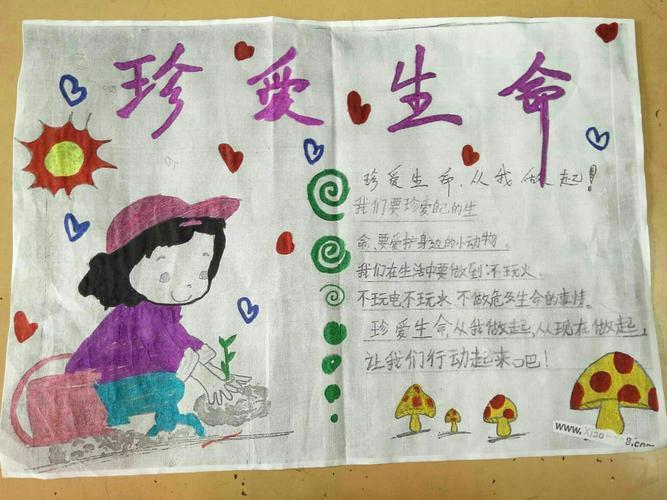 珍爱生命
珍爱生命,从我做起!
我们要珍爱自己的生
命,要爱护身边的小动物。
我们在生活中要做到:不玩火、
不玩电不玩水、不做危及生命的事情。
珍爱生命从我做起,从现在做起,
让我们行动起来吧!